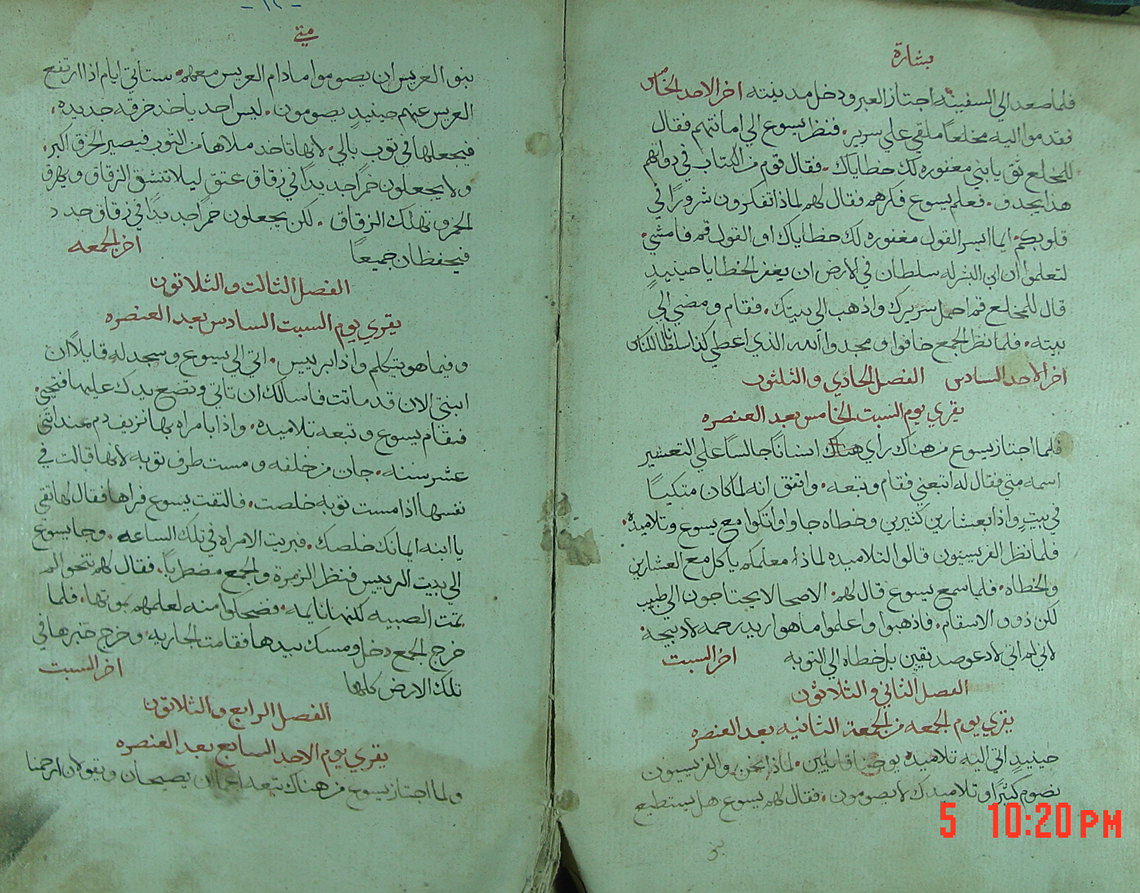 بشارة
فلما صعد الي السفينه اجتاز العبر ودخل مدينته اخر الاحد الخامس
فقدموا اليه مخلعاً ملقي علي سرير. فنظر يسوع الي امانتهم فقال
للمخلع ثق يا بني مغفوره لك خطاياك. فقال قوم من الكتاب في ذواتهم
هذا يجدف. فعلم يسوع فكرهم فقال لهم لماذا تفكرون شروراً في
قلوبكم. ايما ايسر القول مغفوره لك خطاياك او القول قم فامشي.
لتعلموا ان ابن البشر له سلطان في الارض ان يغفر الخطايا حينيدٍ
قال للمخلع قم احمل سريرك واذهب الي بيتك. فقام ومضي الي
بيته. فلما نظر الجمع خافوا ومجدوا الله الذي اعطي كذا سلطاناً للناس
اخر الاحد السادس الفصل الحادي والثلثون
يقري يوم السبت الخامس بعد العنصره
فلما اجتاز يسوع من هناك راي انساناً جالساً علي التعشير
اسمه متي فقال له اتبعني فقام وتبعه. واتفق انه لما كان متكياً
في بيته واذا بعشارين كثيرين وخطاه جاوا واتكوا مع يسوع وتلاميذه.
فلما نظر الفريسيون قالوا لتلاميذه لماذا معلمكم ياكل مع العشارين
والخطاه. فلما سمع يسوع قال لهم. الاصحا لا يحتاجون الي طبيب
لكن ذوو الاسقام. فاذهبوا واعلموا ما هو اريد رحمه لا دبيحة.
لاني لم اتي لادعو صديقين بل خطاه الي التوبه اخر السبت
الفصل الثاني والثلاثون
يقري يوم الجمعه من الجمعة الثانيه بعد العنصره
حينيدٍ اتي اليه تلاميذ يوحنا قايلين. لماذا نحن والفريسيون
نصوم كثيراً وتلاميدك لا يصومون. فقال لهم يسوع هل يستطيع
- ١٢ -
متي
بنو العريس ان يصوموا ما دام العريس معهم. ستاتي ايام اذا ارتفع
العريس عنهم حينيدٍ يصومون. ليس احد ياخد خرقه جديده.
فيجعلها في توب بالي. لانها تاخد ملاها من التوب فيصير الخرق اكبر.
ولا يجعلون خمراً جديداً في زقاق عتق ليلا تنشق الزقاق ويهرق
الخمر وتهلك الزقاق. لكن يجعلون خمراً جديداً في زقاق جدد
فيحفظان جميعاً اخر الجمعه
الفصل التالت والتلاتون
يقري يوم السبت السادس بعد العنصره
وفيما هو يتكلم واذا بريس. اتي الي يسوع وسجد له قايلاً ان
ابنتي الان قد ماتت فاسالك ان تاتي وتضع يدك عليها فتحيي.
فقام يسوع وتبعه تلاميده. واذا بامراه بها نزيف دم منذ اثني
عشر سنه. جات من خلفه ومست طرف توبه لانها قالت في
نفسها اذا مست توبه خلصت. فالتفت يسوع فراها فقال لها تقي
يا ابنه ايمانك خلصك. فبريت الامراه في تلك الساعه. وجا يسوع
الي بيت الريس فنظر الزمرة والجمع مضطرباً. فقال لهم تنحوا لم
تمت الصبيه لكنها نايمه. فضحكوا منه لعلمهم بموتها. فلما
خرج الجمع دخل ومسك بيدها فقامت الجاريه. وخرج خبرها في
تلك الارض كلها اخر السبت
الفصل الرابع والتلاتون
يقري يوم الاحد السابع بعد العنصره
ولما اجتاز يسوع من هناك تبعه اعميان يصيحان ويقولان ارحمنا
5 10:20 PM